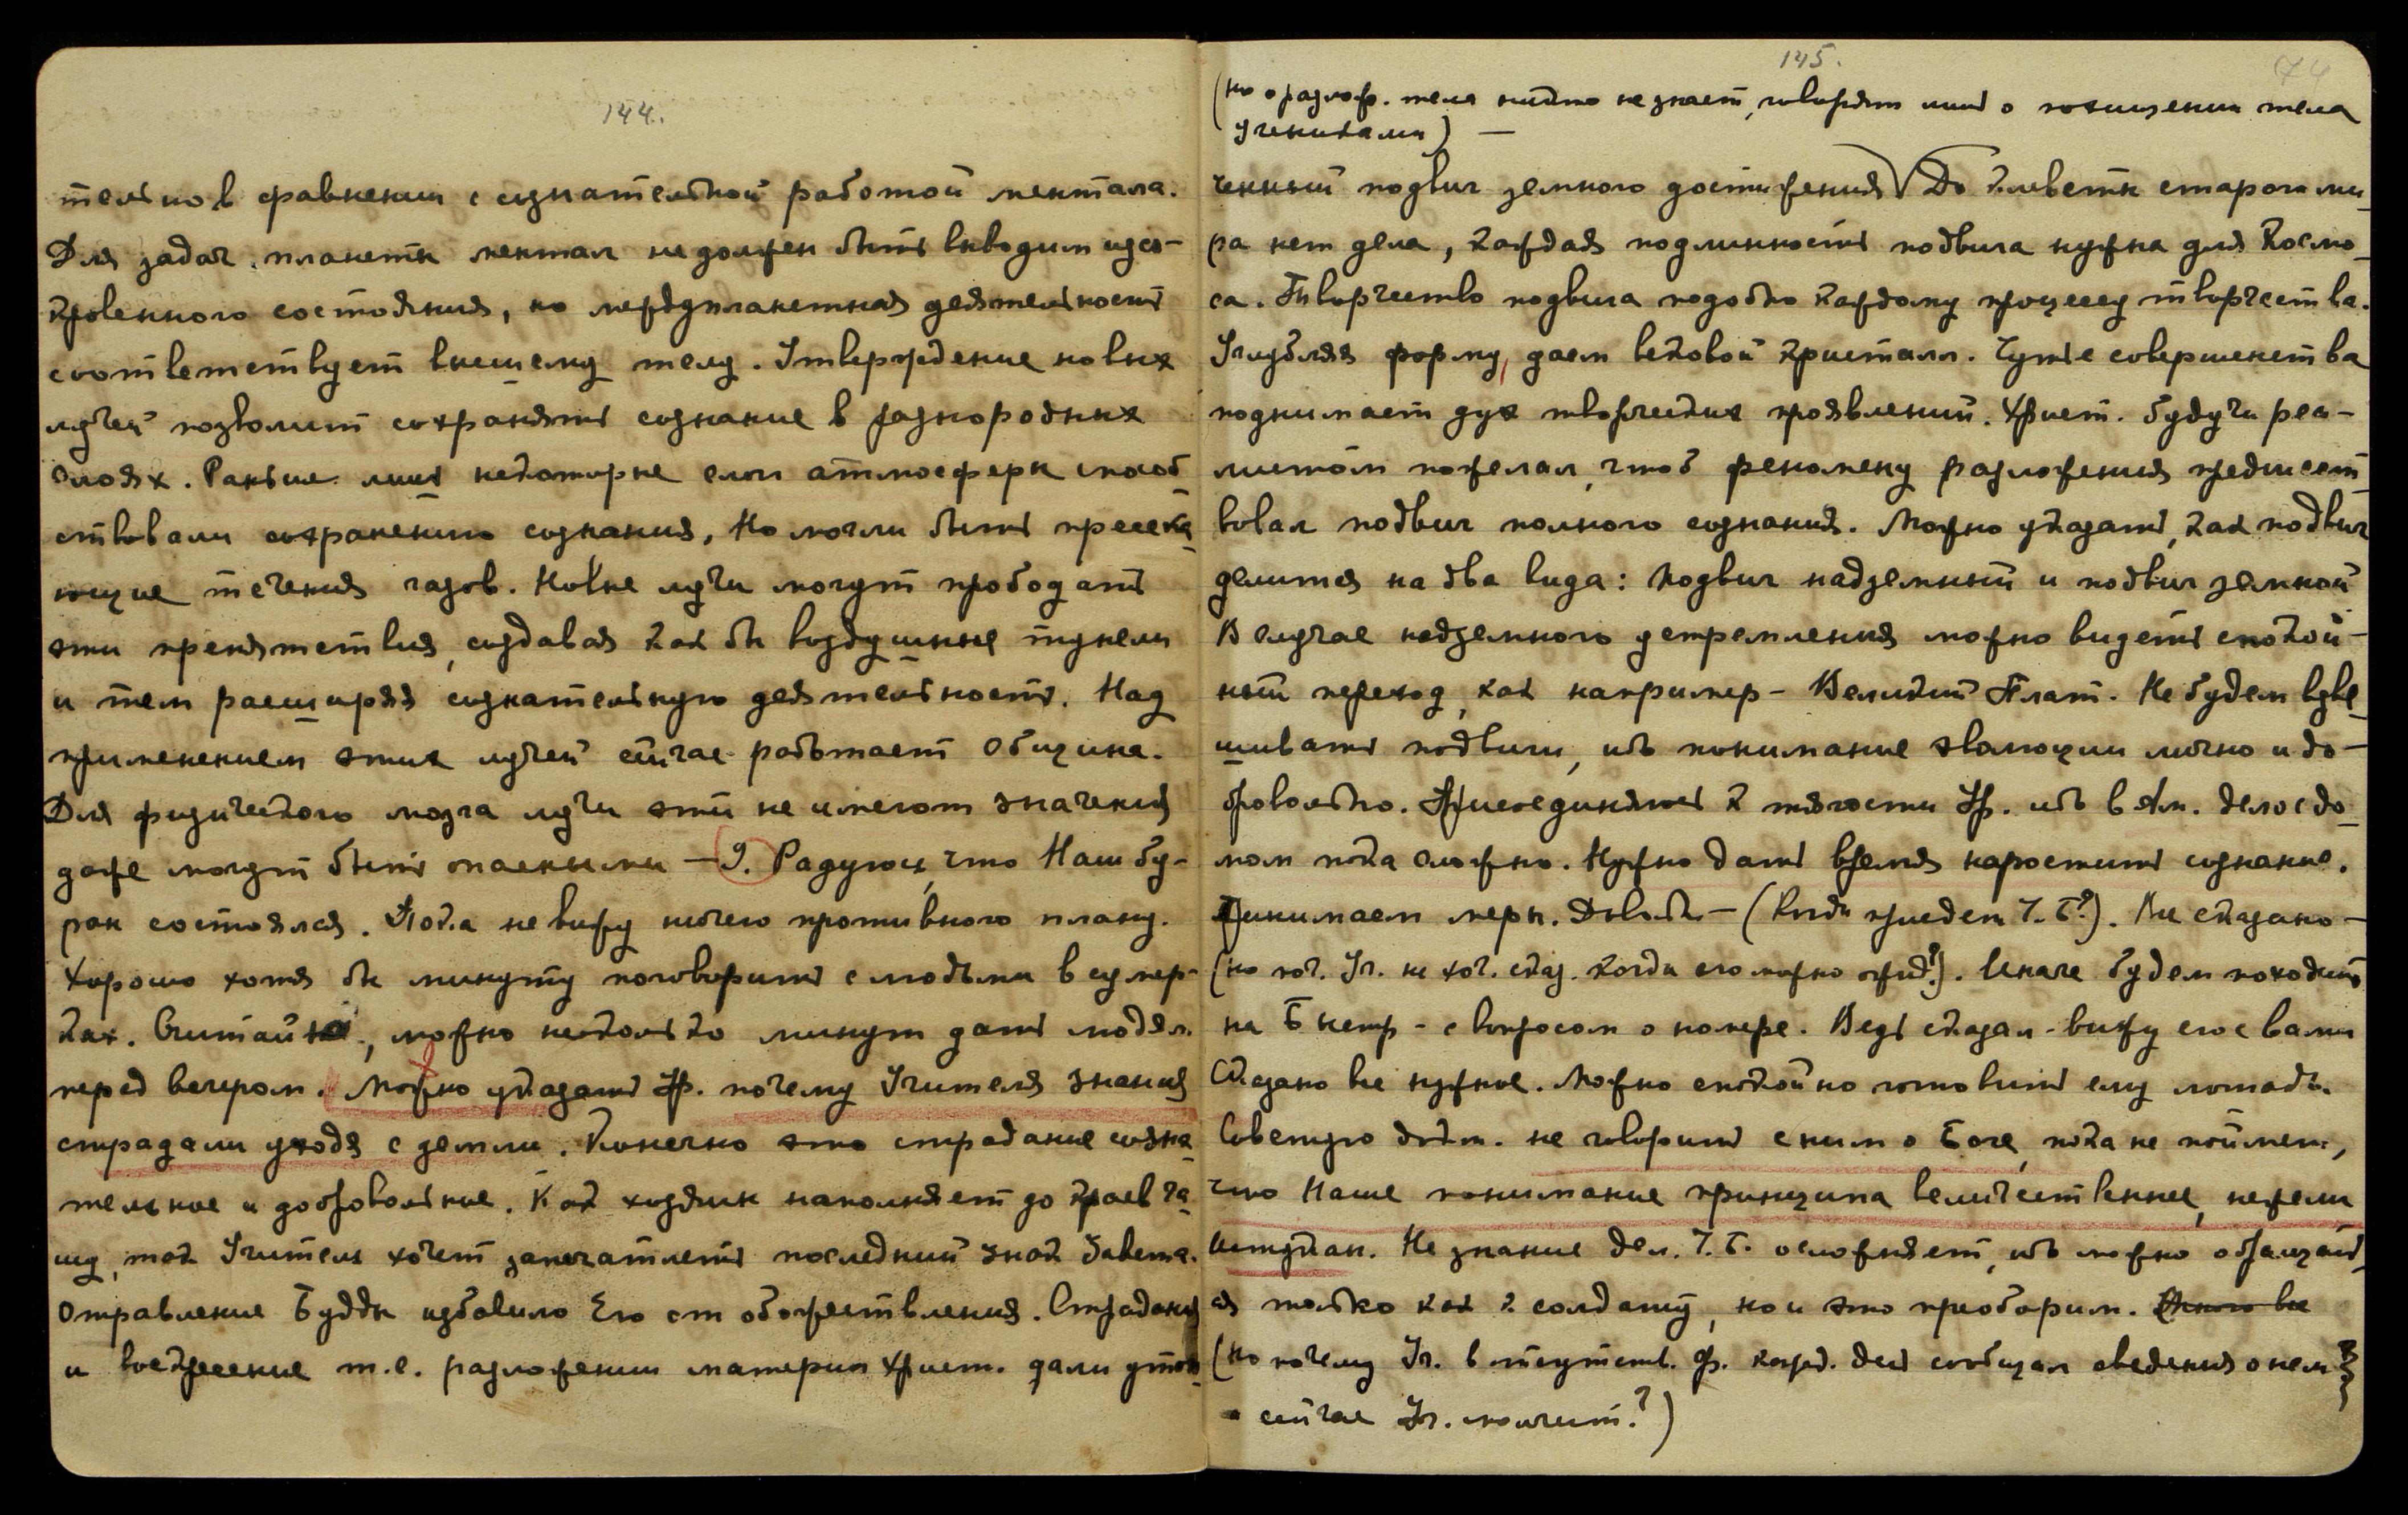 144.
тельно в сравнении с сознательной работой ментала.
Для задач планеты ментал не должен быть вводим из со-
кровенного состояния, но междупланетная деятельность
соответствует высшему телу. Утверждение новых
лучей позволит сохранять сознание в разнородных
слоях. Раньше лишь некоторые слои атмосферы способ
ствовали сохранению сознания, но могли быть пресека
ющие течения газов. Новые лучи могут прободать
эти препятствия, создавая как бы воздушные тунели
и тем расширяя сознательную деятельность. Над
применением этих лучей сейчас работает Община.
Для физического мозга лучи эти не имеют значения
даже могут быть опасными — 9. Радуюсь, что Наш бу-
ран состоялся. Пока не вижу ничего противного плану.
Хорошо хотя бы минуту поговорить с людьми в сумер-
ках. , можно несколько минут дать людям
перед вечером. Можно указать Ур. почему Учителя знания
страдали уходя с земли. Конечно это страдание созна
тельное и добровольное. Как хозяин наполняет до краев ча
шу, так Учитель хочет запечатлеть последний знак Завета.
Отравление Будды избавило Его от обожествления. Страдания
и воскресение т.е. разложении материи Христ. дали утон
145.
74
(но о разлож. тела никто не знает, говорят лишь о похищении тела
Учениками) —
ченный подвиг земного достижения √ До клеветы старого ми
ра нет дела, каждая подлинность подвига нужна для Космо
са. Творчество подвига подобно каждому процессу творчества.
Углубляя форму, даем вековой кристалл. Чутье совершенства
поднимает дух творческих проявлений. Христ. будучи реа-
листом пожелал, чтоб феномену разложения предшест
вовал подвиг полного сознания. Можно указать, как подвиг
делится на два вида: подвиг надземный и подвиг земной
В случае надземного устремления можно видеть спокой-
ный переход, как например - Великий Плат. Не будем взве
шивать подвиги, ибо понимание эволюции лично и до-
бровольно. Присоединяюсь к тягости Ур. ибо в Ам. дело с до
мом пока сложно. Нужно дать время наростить сознание.
Принимаем меры. Довольно — (Когда приедет Ч. Б?). Все сказано —
(но поч. Уч. не хоч. сказ. когда его можно ожид?). Иначе будем походить
на Б - с вопросом о номере. Ведь сказал - вижу его с вами
Сказано все нужное. Можно спокойно готовить ему лошадь.
Советую не говорить с ним о Боге, пока не поймет,
что Наше понимание принципа величественнее, нежели
 Не знание дел. Ч. Б. осложняет, ибо можно обращать
ся только как к солдату, но и это преоборим.
(но почему Уч. в Ф. кажд. день сообщал сведения о нем
а сейчас Уч. молчит?)